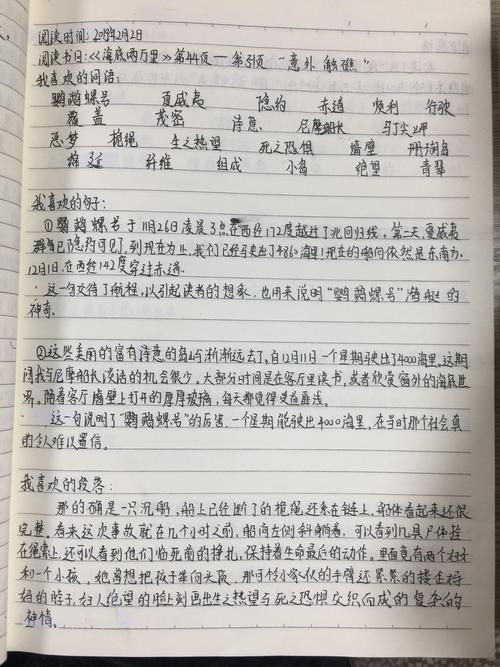 阅读时间:2019年2月2日
阅读书目:《海底两万里》第44页——第51页 "意外触礁"
我喜欢的词语:
鹦鹉螺号 夏威夷 隐约 赤道 顺利 行驶
覆盖 茂密 诗意 尼摩船长 马丁尖岬
恶梦 桅绳 生之热望 死之恐惧 墙壁 珊瑚岛
绵延 纤维 组成 小岛 绝望 青翠
我喜欢的句子:
①鹦鹉螺号于11月26日凌晨3点在西经172度越过了北回归线,第二天,夏威夷
群岛已隐约可见了,到现在为止,我们已经驶出了4860海里!现在的船向依然是东南方,
12月1日,在西经142度穿过赤道。
这一句交待了航程,以引起读者的想象,也用来说明"鹦鹉螺号"潜艇的
神奇。
②这些美丽的富有诗意的岛屿渐渐远去了,自12月11日一个星期驶出了4000海里。这期
间我与尼摩船长谈话的机会很少,大部分时间是在客厅里读书,或者欣赏窗外的海底世
界。隔着客厅墙壁上打开的厚厚玻璃,每天都觉得受益匪浅。
这一句说明了"鹦鹉螺号"的厉害,一个星期能驶出4000海里,在当时那个社会真
的令人难以置信。
我喜欢的段落:
那的确是一只沉船,船上已经断了的桅绳还系在链上,船体看起来还很
完整,看来这次事故就在几个小时之前,船向左侧斜躺着,可以看到几具尸体拴
在绳索上,还可以看到他们临死前的挣扎,保持着生命最后的动作。里面竟有两个妇女
和一个小孩,她曾想把孩子举向头顶,那可怜小家伙的手臂还紧紧的搂在妈
妈的脖子,妇人绝望的脸上刻画出生之热望与死之恐惧交织而成的复杂的
神情。